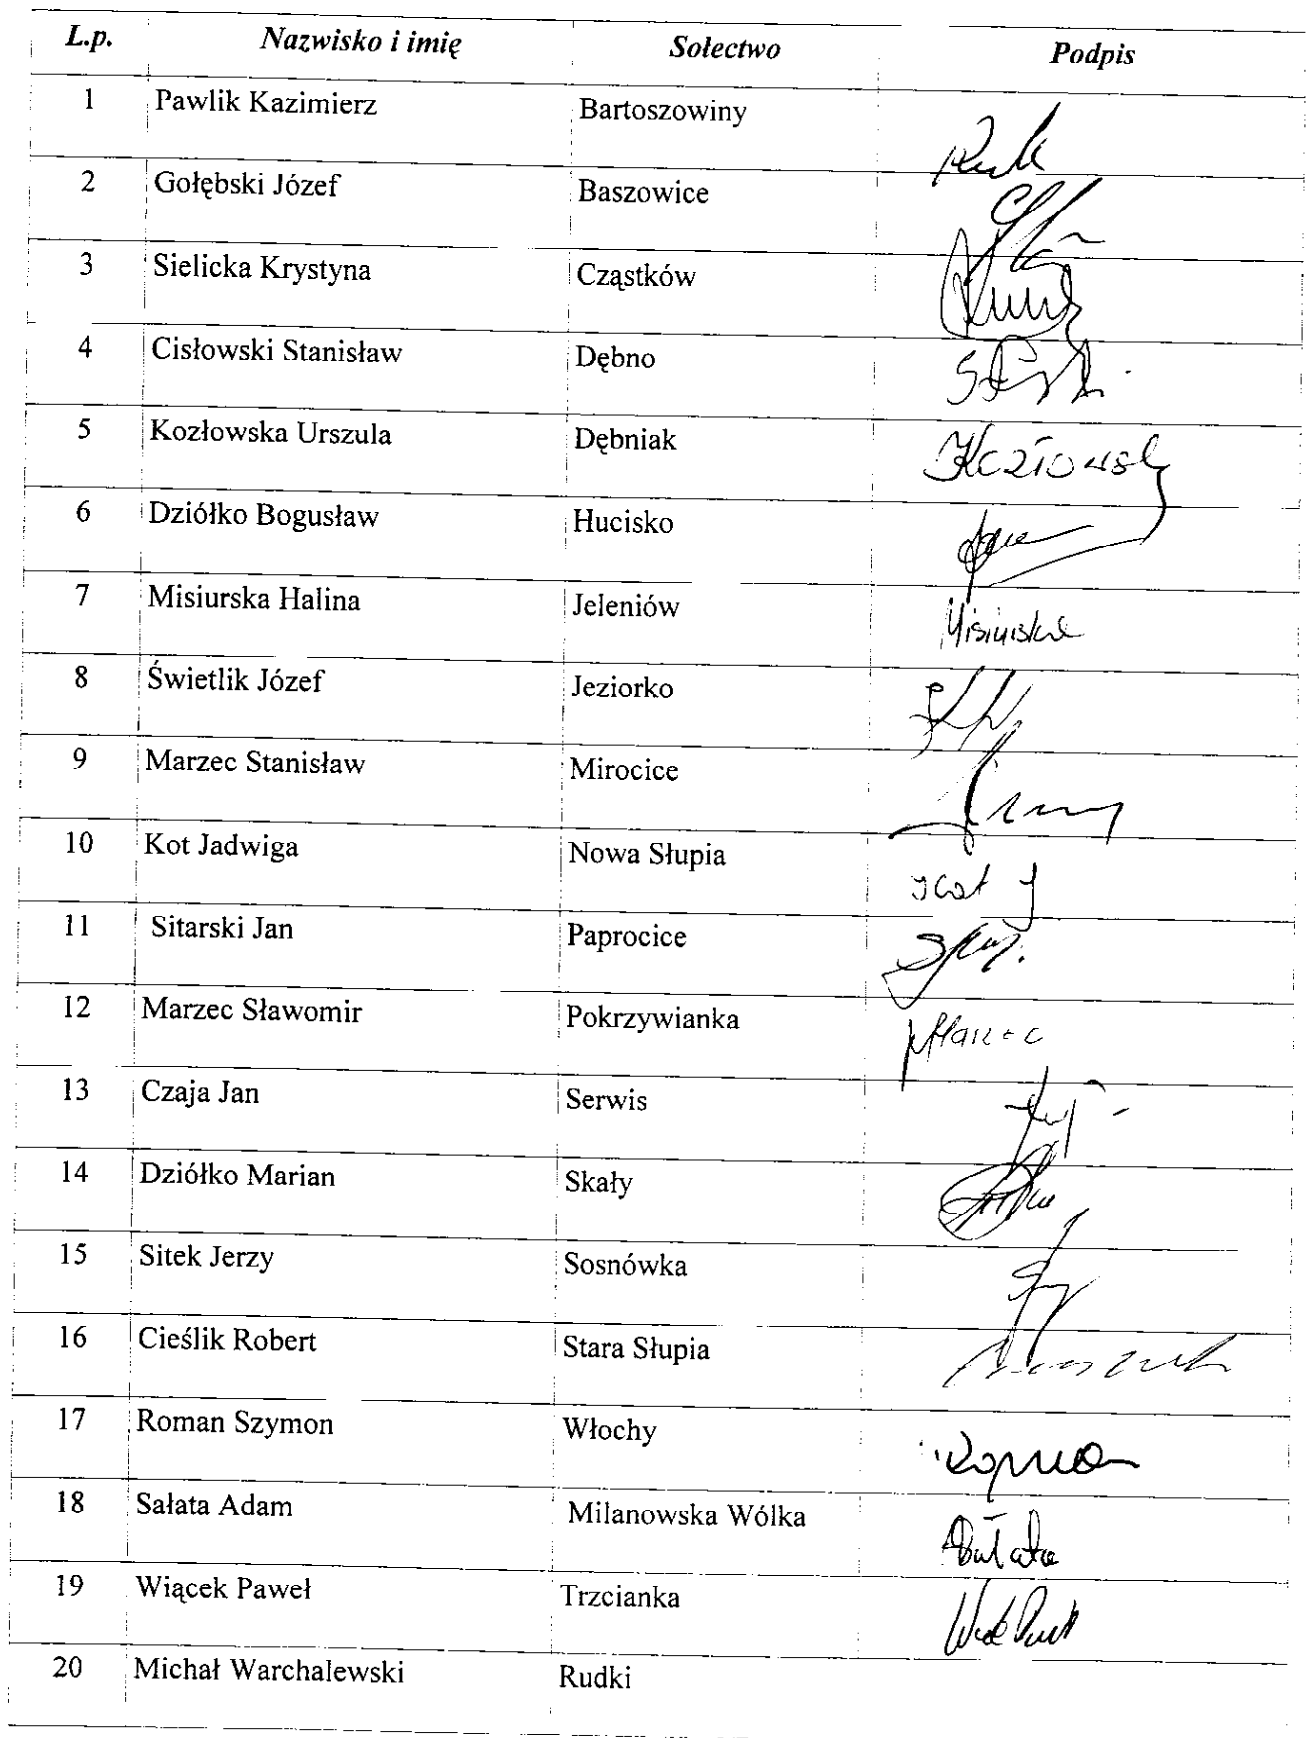 L.p. Nazwisko i imię Sołectwo Podpis
1 Pawlik Kazimierz Bartoszowiny
2 Gołębski Józef Baszowice
3 Sielicka Krystyna Cząstków
4 Cisłowski Stanisław Dębno
5 Kozłowska Urszula Dębniak
6 Dziółko Bogusław Hucisko
7 Misiurska Halina Jeleniów Misiurska
8 Świetlik Józef Jeziorko
9 Marzec Stanisław Mirocice
10 Kot Jadwiga Nowa Słupia Kot J
11 Sitarski Jan Paprocice
12 Marzec Sławomir Pokrzywianka Marzec
13 Czaja Jan Serwis
14 Dziółko Marian Skały
15 Sitek Jerzy Sosnówka
16 Cieślik Robert Stara Słupia
17 Roman Szymon Włochy Roman
18 Sałata Adam Milanowska Wólka Sałata
19 Wiącek Paweł Trzcianka
20 Michał Warchalewski Rudki